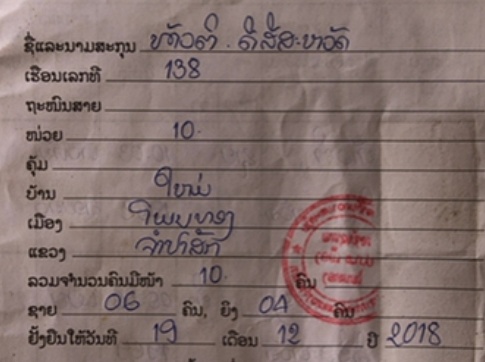 ຊື່ແລະນາມສະກຸນ ທ້າວຕໍ່ . ດີສັສະຫວັດ
ເຮືອນເລກທີ 138
ຖະໜົນສາຍ
ໜ່ວຍ 10
ຄຸ້ມ
ບ້ານ ໃຫມ່
ເມືອງ ໂພນທອງ
ແຂວງ ຈຳປາສັກ
ລວມຈຳນວນຄົນມີໜ້າ 10 ຄົນ
ຊາຍ 06 ຄົນ, ຍິງ 04 ຄົນ
ຢັ້ງຢືນໃຫ້ວັນທີ 19 ເດືອນ 12 ປີ 2018